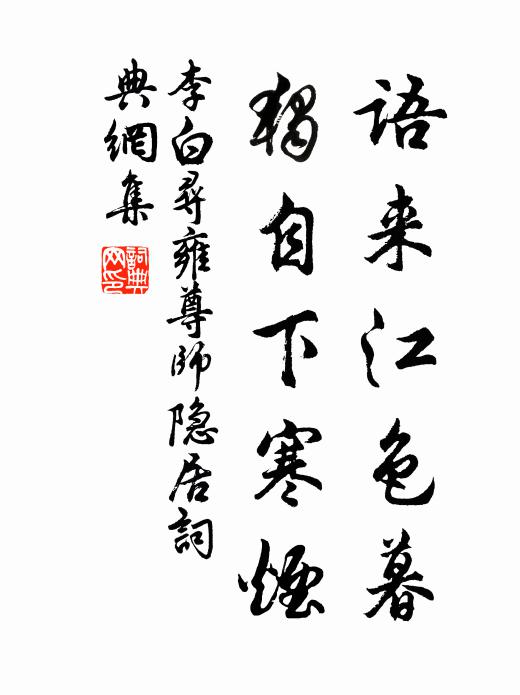 语来江色暮
独自下寒烟
李白寻雍尊师隐居词
典网集
词典网印